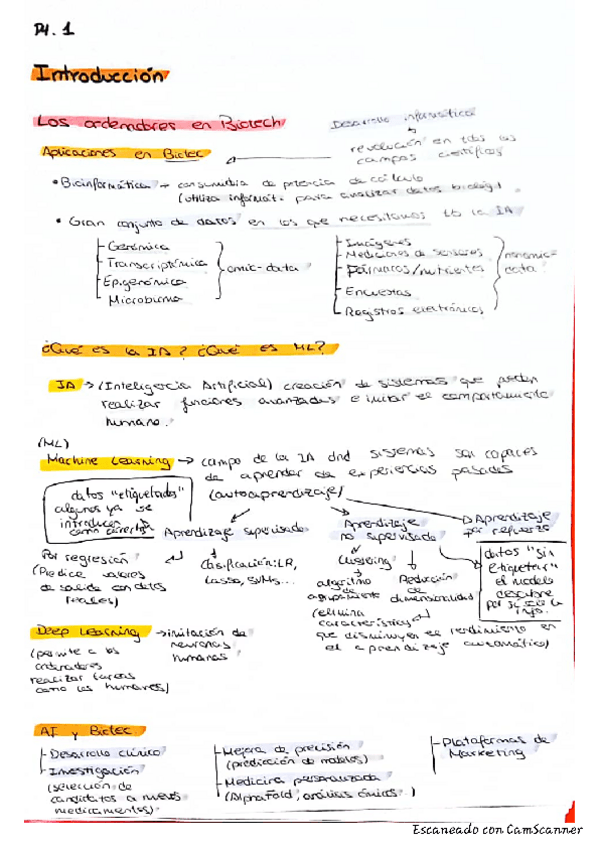 P4. 1
Introducción
Los ordenadores en Biotech
Desarrollo informático
Aplicaciones en Biotec
revolución en tdos los
campos científicos
• Bioinformática → consumidora de potencia de cálculo
(utiliza informát. para analizar datos biológ)
• Gran conjunto de datos en los que necesitamos tb la IA
Genómica
Transcriptómica
Epigenómica
Microbioma
omic-data
Imágenes
Mediciones de sensores
Fármacos/nutrientes
Encuestas
Registros electrónicos
nonomic-
data
¿Qué es la IA? ¿Qué es ML?
IA → (Inteligencia Artificial) creación de sistemas que pueden
realizar funciones avanzadas e imitar el comportamiento
humano.
(ML)
Machine Learning → campo de la IA dnd sistemas son capaces
de aprender de experiencias pasadas
(autoaprendizaje)
datos "etiquetados"
algunos ya se
introducen
como correctos
Aprendizaje supervisado
Aprendizaje
no supervisado
Aprendizaje
por refuerzo
Por regresión
(Predice valores
de salida con datos
reales)
Clasificación: LR,
Lasso, SVMs...
Clustering
algoritmo
de
agrupamiento
Reducción
de
dimensionalidad
(elimina
características
que disminuyen el rendimiento en
el aprendizaje automático)
datos "sin
etiquetar"
el modelo
descubre
por sí solo la
info.
Deep Learning → imitación de
neuronas
humanas
(permite a los
ordenadores
realizar tareas
como los humanos)
AI y Biotec
Desarrollo clínico
Investigación
(selección de
candidatos a nuevos
medicamentos)
Mejora de precisión
(predicción de modelos)
Medicina personalizada
(AlphaFold, análisis ómicos)
Plataformas de
Marketing
Escaneado con CamScanner